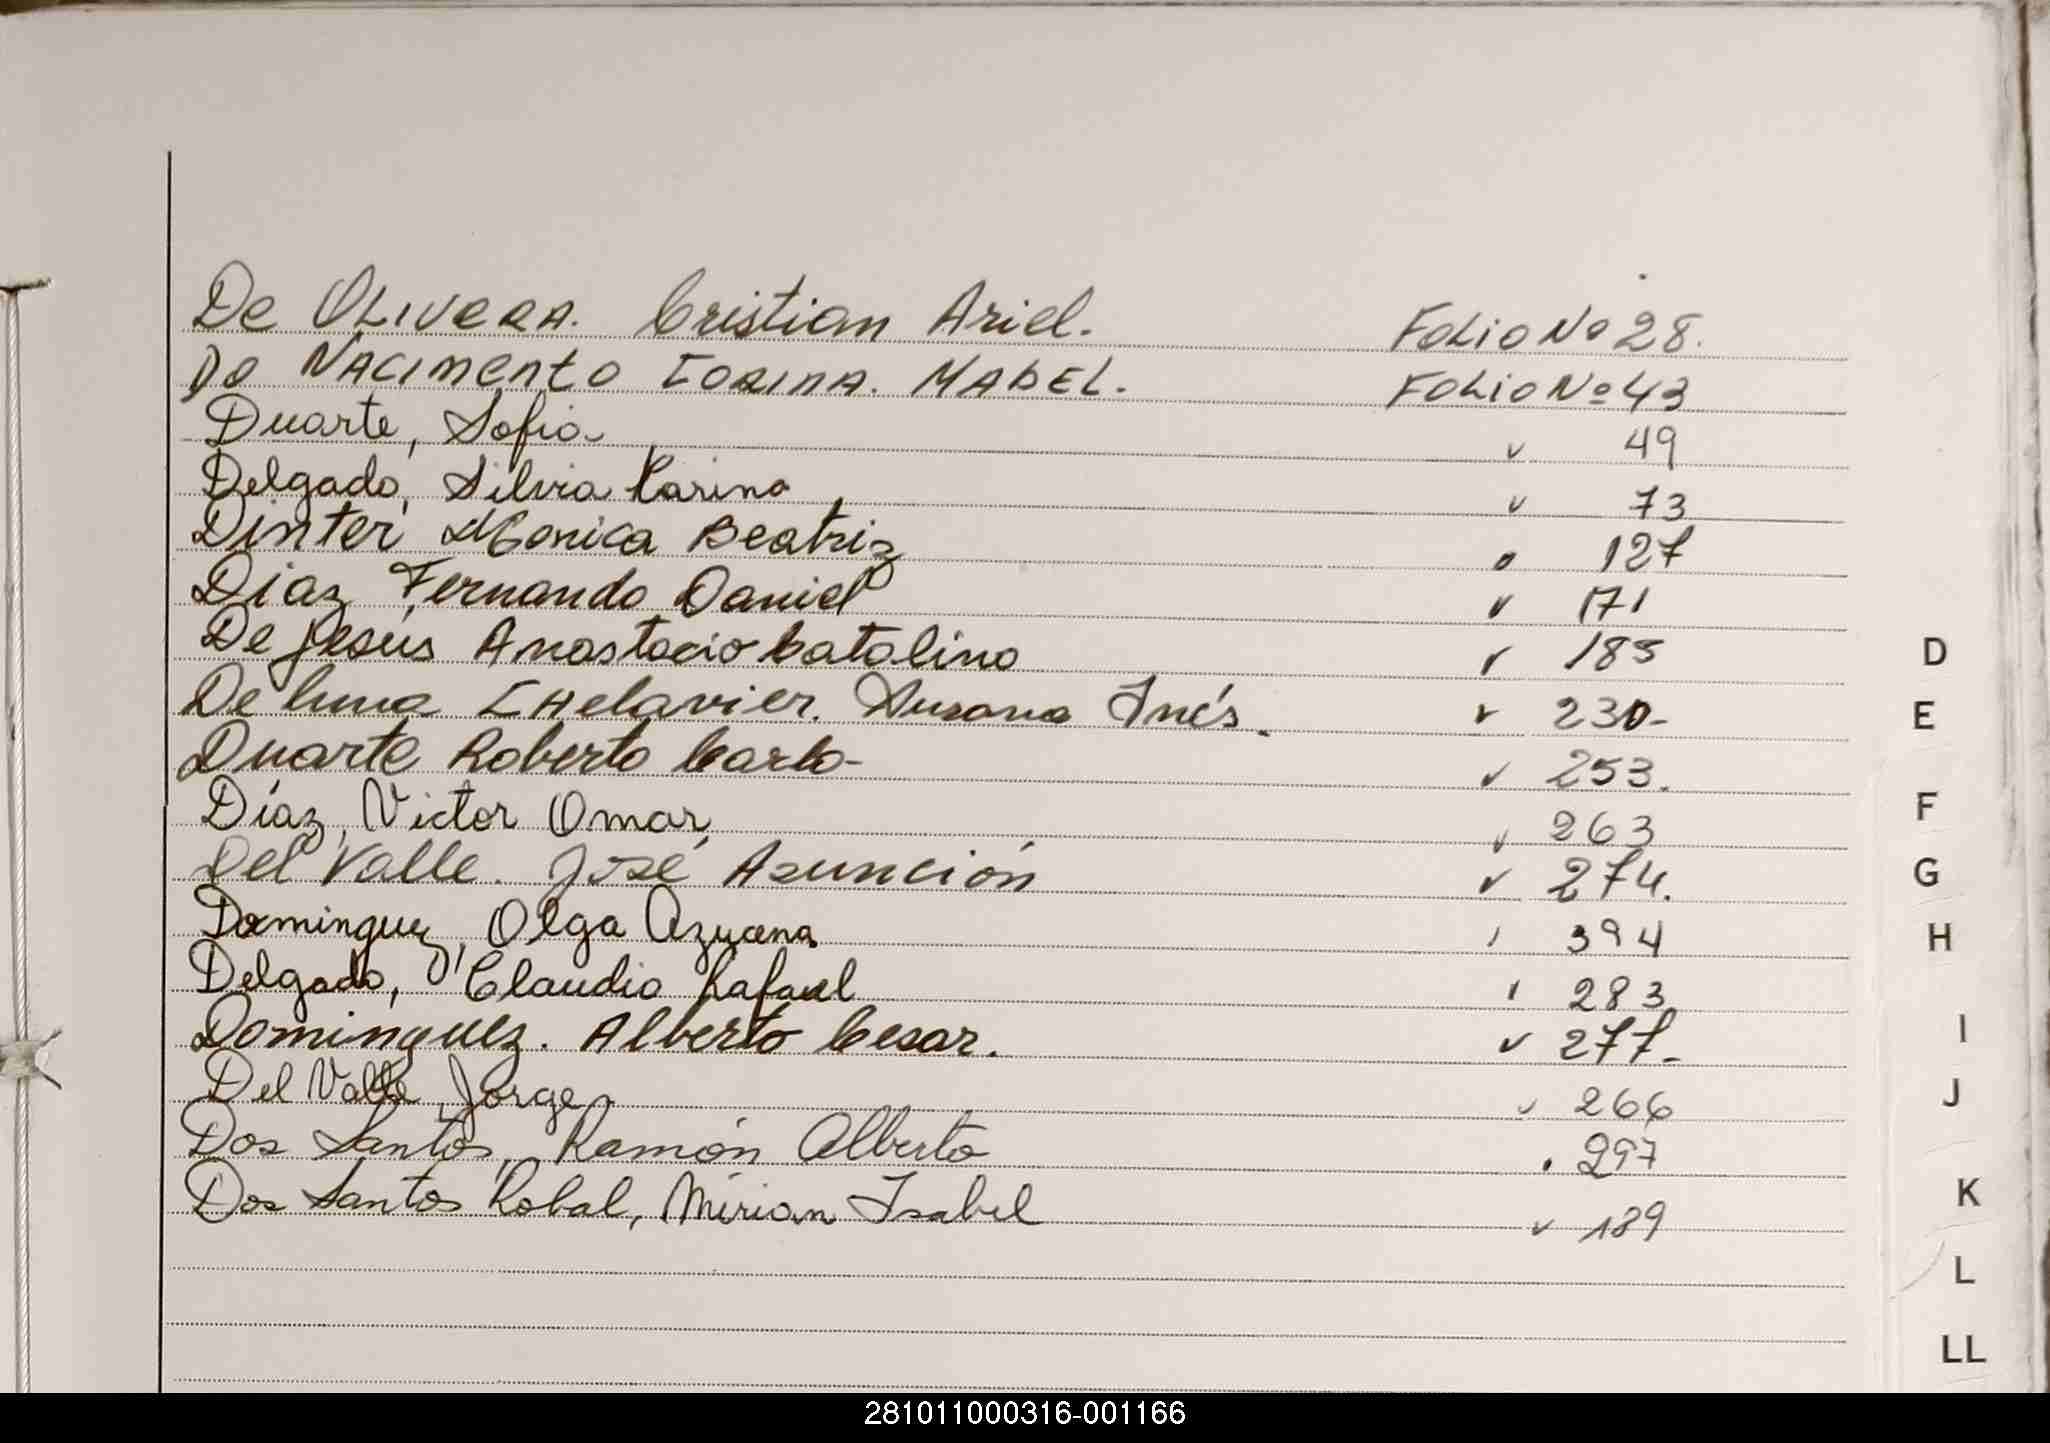 De OLIVERA. Cristian Ariel. FOLIO Nº 28.
Do NACIMENTO CORINA. MABEL. FOLIO Nº 43
Duarte, Sofia 49
Delgado, Silvia Karina 73
Dinter Monica Beatriz 127
Diaz Fernando Daniel 171
De Jesús Anastacio Catalino 185
De Luna Susana Inés. 230-
Duarte Roberto Carlo- 253.
Díaz, Victor Omar 263
Del Valle. José Asunción 274.
Dominguez, Olga Azucena 394
Delgado, Claudio Rafael 283
Dominguez. Alberto Cesar. 277-
Del Valle, Jorge 266
Dos Santos, Ramón Alberto 297
Dos Santos Robal, Mirian Isabel 189
D
E
F
G
H
I
J
K
L
LL
281011000316-001166